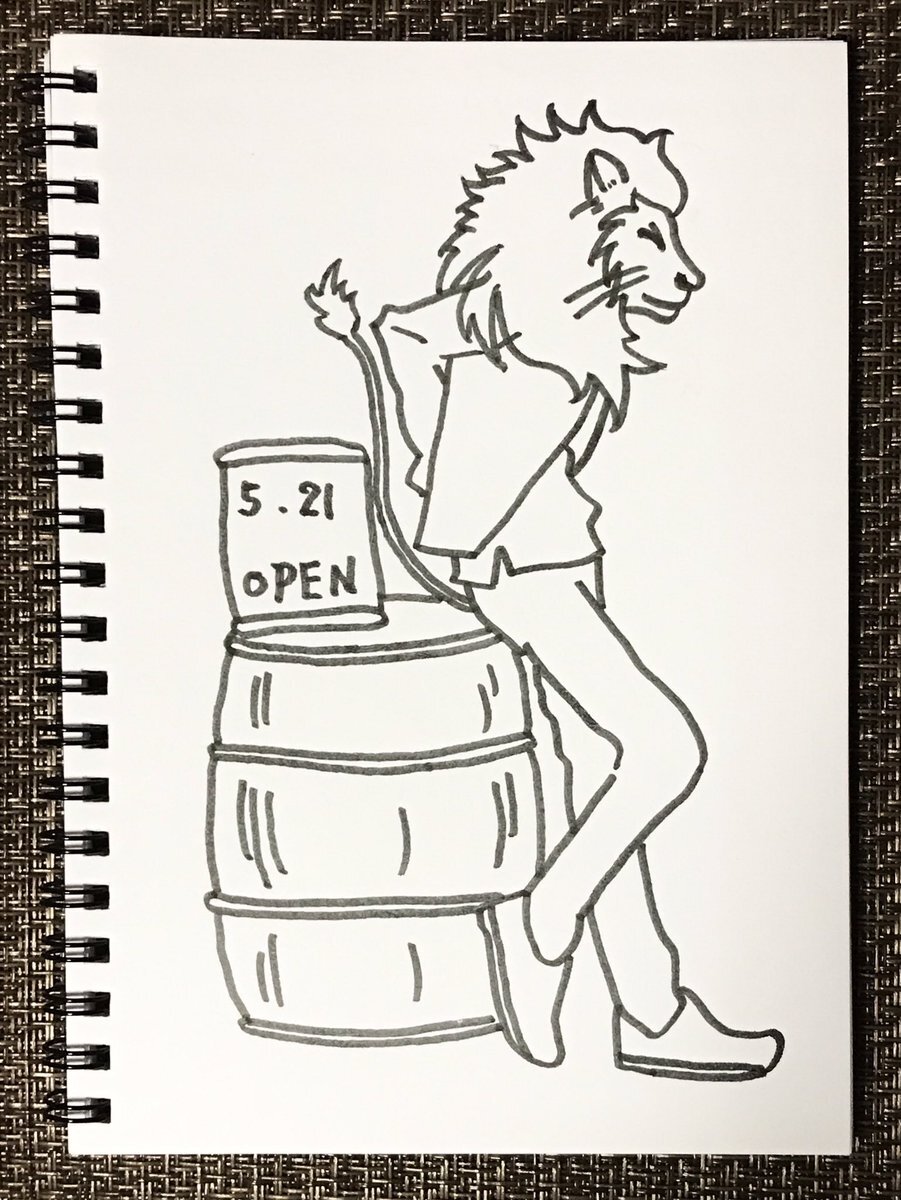 5.21
OPEN